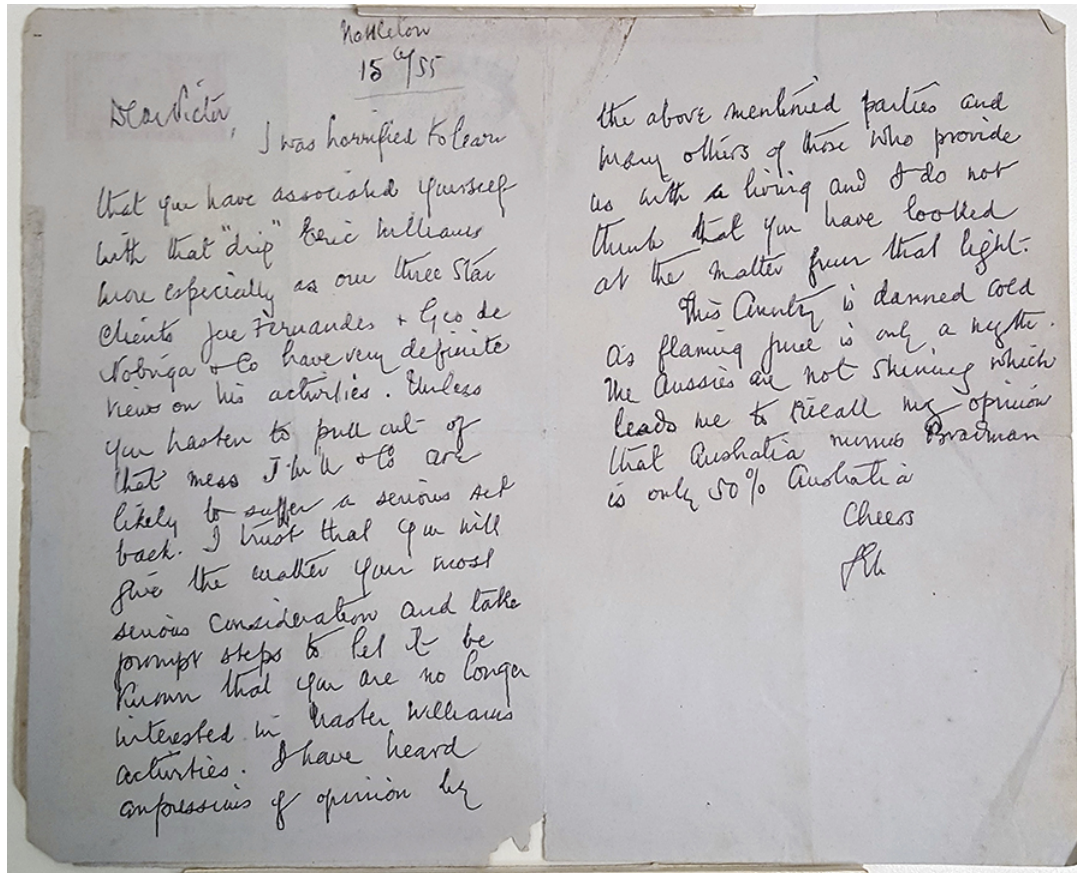 15 6/55
Dear Victor,
I was horrified to learn
that you have associated yourself
with that "drip" Eric Williams
more especially as our three star
Clients Joe Fernandes + Geo de
Nobriga + Co have very definite
views on his activities. Unless
you hasten to pull out of
that mess + Co are
likely to suffer a serious set
back. I trust that you will
give the matter your most
serious consideration and take
prompt steps to let it be
known that you are no longer
interested in Master Williams
activities. I have heard
expressions of opinion by
the above mentioned parties and
many others of those who provide
us with a living and I do not
think that you have looked
at the matter from that light.
This Country is damned cold
as flaming June is only a myth.
The Aussies are not shining which
leads me to recall my opinion
that Australia minus Bradman
is only 50% Australia
Cheers